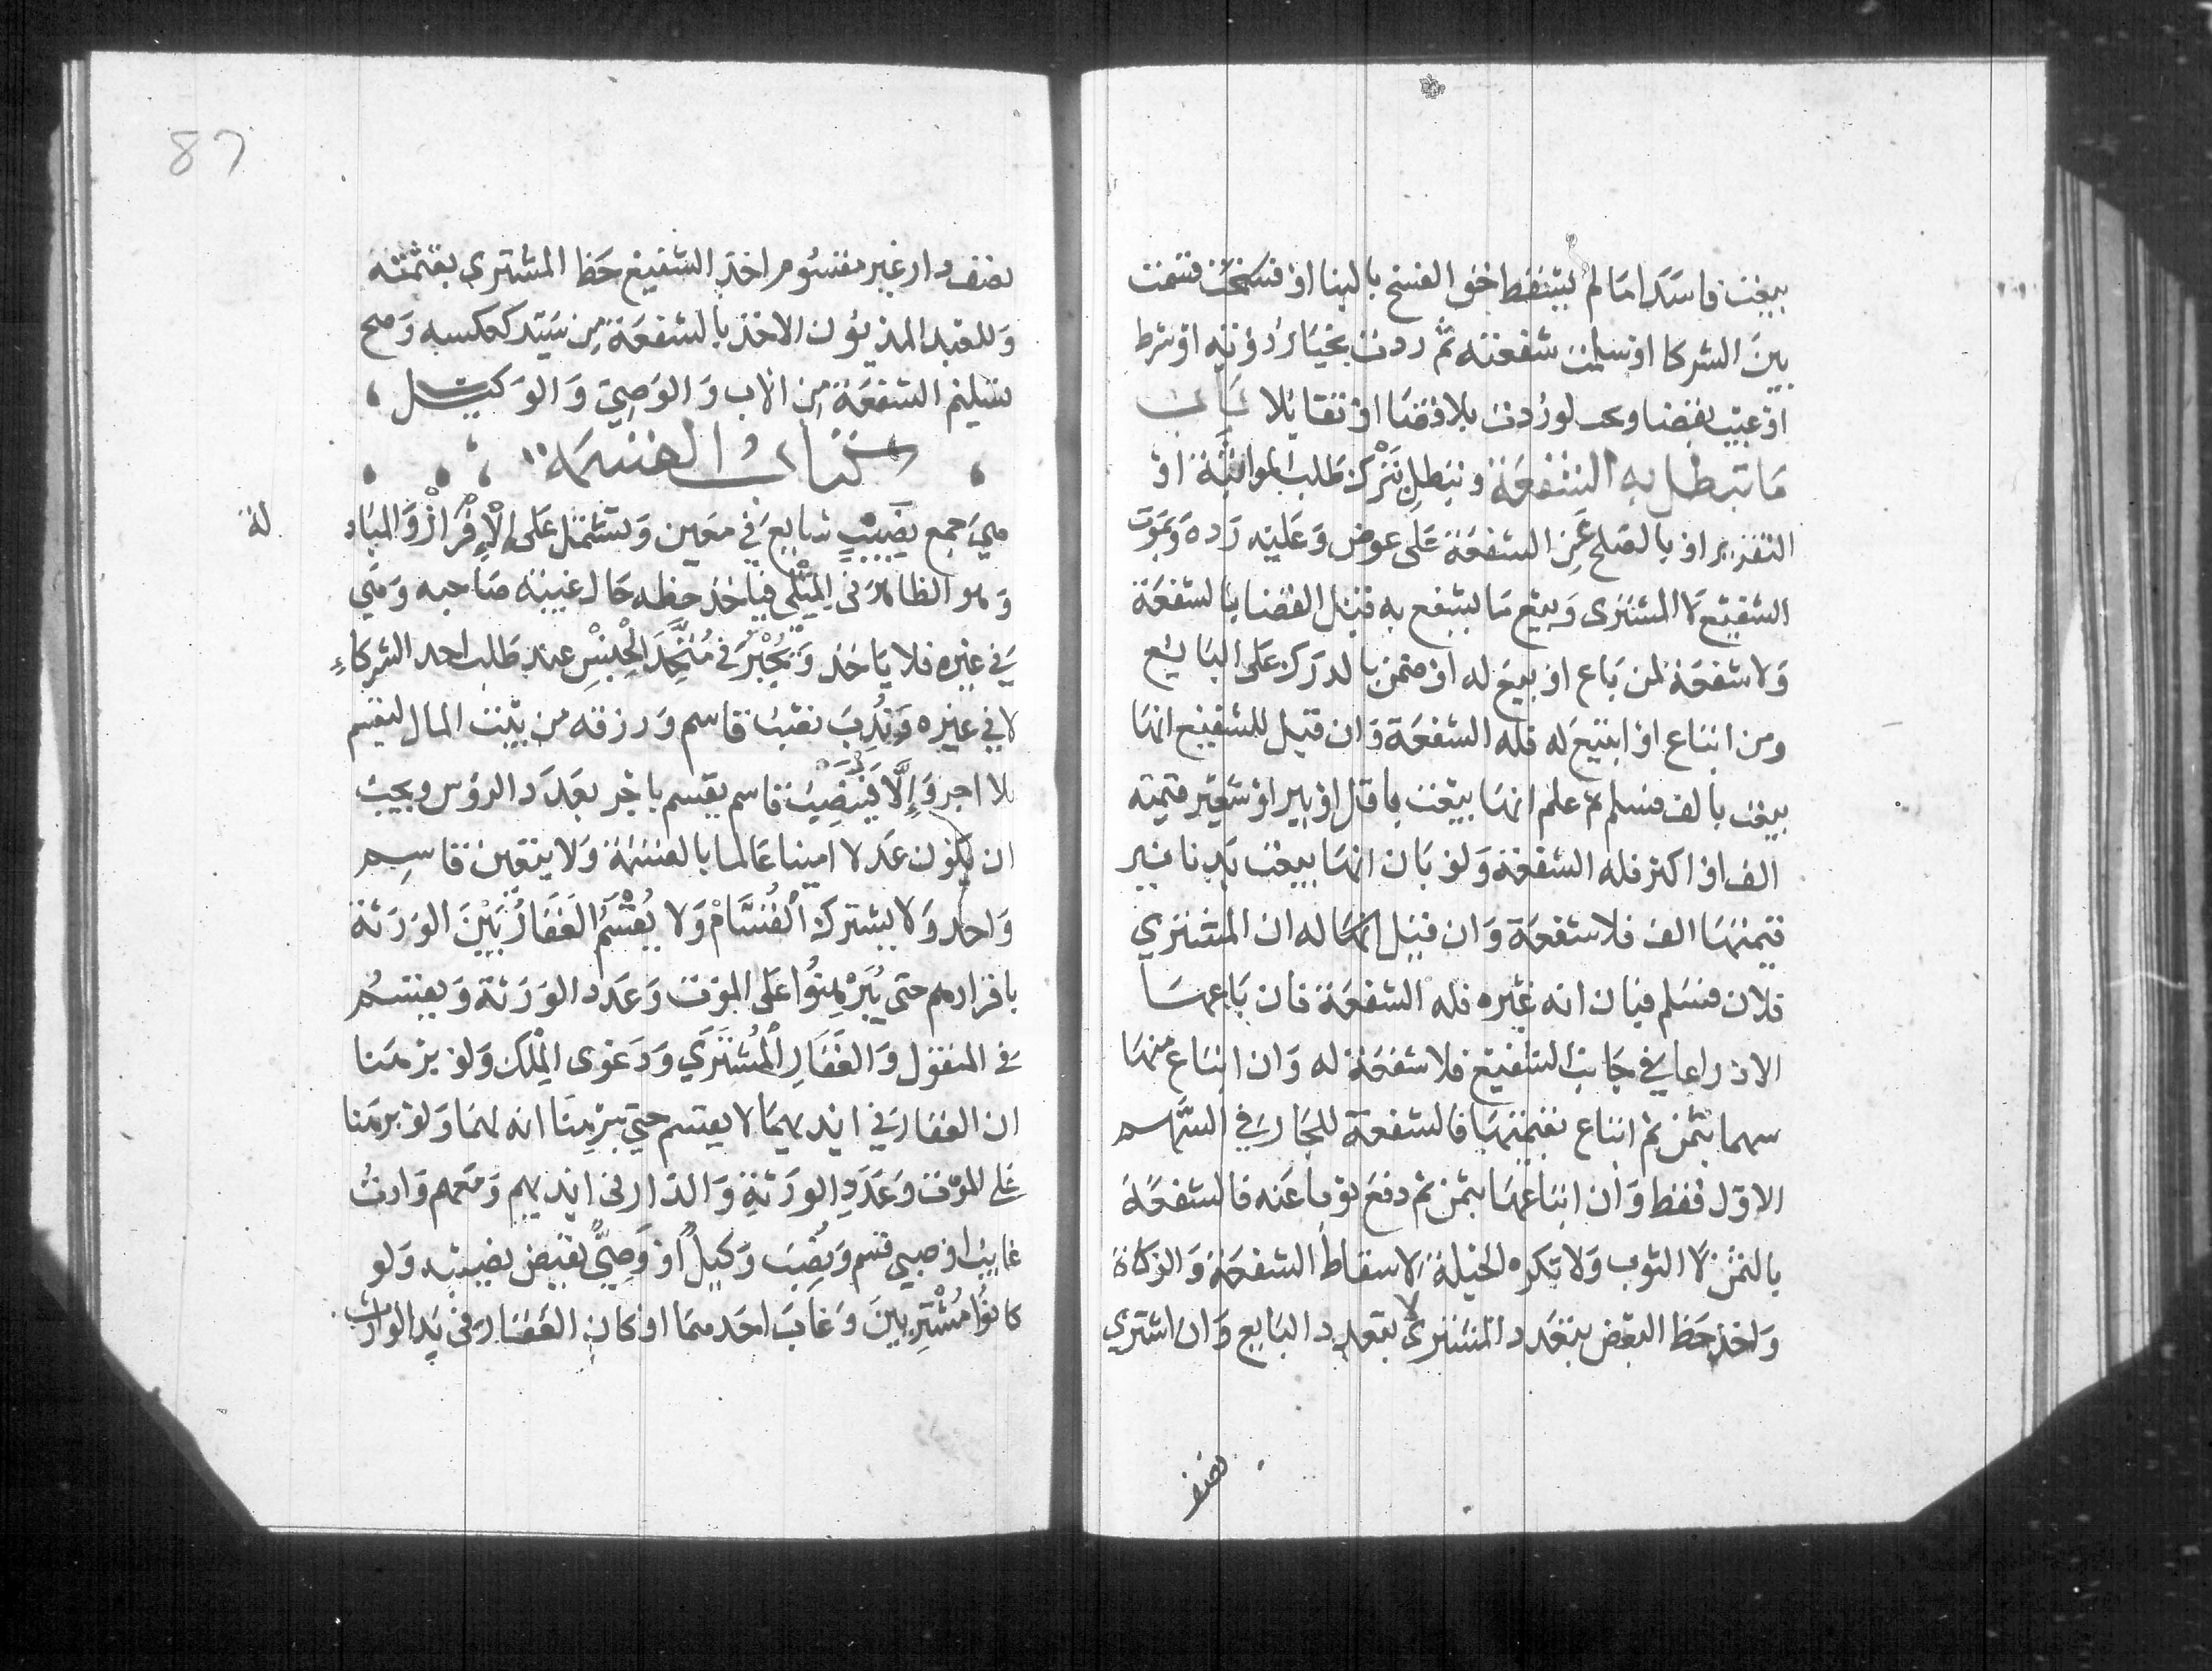 بيعت فاسدا ما لم يسقط حق الفسخ بالبنا او قسمت
بين الشركا او سلمت شفعته ثم ردت بخيار رؤية او شرط
او عيب بقضا وتجب لو ردت بلا قضا او تقايلا باب
ما تبطل به الشفعة وتبطل بترك طلب المواثبة او
التقرير او بالصلح عن الشفعة على عوض وعليه رده وبموت
الشفيع لا المشترى وبيع ما يشفع به قبل القضا بالشفعة
ولا شفعة لمن باع او بيع له او ضمن بالدرك على البايع
ومن ابتاع او ابتيع له فله الشفعة وان قيل للشفيع انها
بيعت بالف فسلم ثم علم انها بيعت باقل او ببر او شعير قيمته
الف او اكثر فله الشفعة ولو بان انها بيعت بدنانير
قيمتها الف فلا شفعة وان قيل له ان المشتري
فلان فسلم فبان انه غيره فله الشفعة فان باعها
الا ذراعا في جانب الشفيع فلا شفعة له وان ابتاع منها
سهما بثمن ثم ابتاع بقيتها فالشفعة للجار في السهم
الاول فقط وان ابتاعها بثمن ثم دفع ثوبا عنه فالشفعة
بالثمن لا الثوب ولا تكره الحيلة لاسقاط الشفعة والزكاة
واخذ حظ البعض بتعدد المشترى لا بتعدد البايع وان اشترى
نصف
87
نصف دار غير مقسوم اخذ الشفيع حظ المشترى بقسمته
وللعبد المذيون الاخذ بالشفعة من سيده كعكسه وصح
تسليم الشفعة من الاب والوصي والوكيل
كتاب القسمة
هي جمع نصيب شايع في معين وتشتمل على الافراز والمباد
لة
وهو الظاهر فى المثلى فياخذ حظه حال غيبة صاحبه وهي
في غيره فلا ياخذ ويجبر في متحد الجنس عند طلب احد الشركاء
لا في غيره وندب نصب قاسم ورزقه من بيت المال ليقسم
بلا اجر والا فينصب قاسم يقسم باجر بعدد الروس ويجب
ان يكون عدلا امينا عالما بالقسمة ولا يتعين قاسم
واحد ولا يشترك القسام ولا يقسم العقار بين الورثة
باقرارهم حتى يبرهنوا على الموت وعدد الورثة ويقسم
فى المنقول والعقار المشترى ودعوى الملك ولو برهنا
ان العقار في ايديهما لا يقسم حتي يبرهنا انه لهما ولو برهنا
على الموت وعدد الورثة والدار فى ايديهم ومعهم وارث
غايب او صبي قسم ونصب وكيل او وصي يقبض نصيبه ولو
كانوا مشتريين وغاب احدهما او كان العقار فى يد الوارث